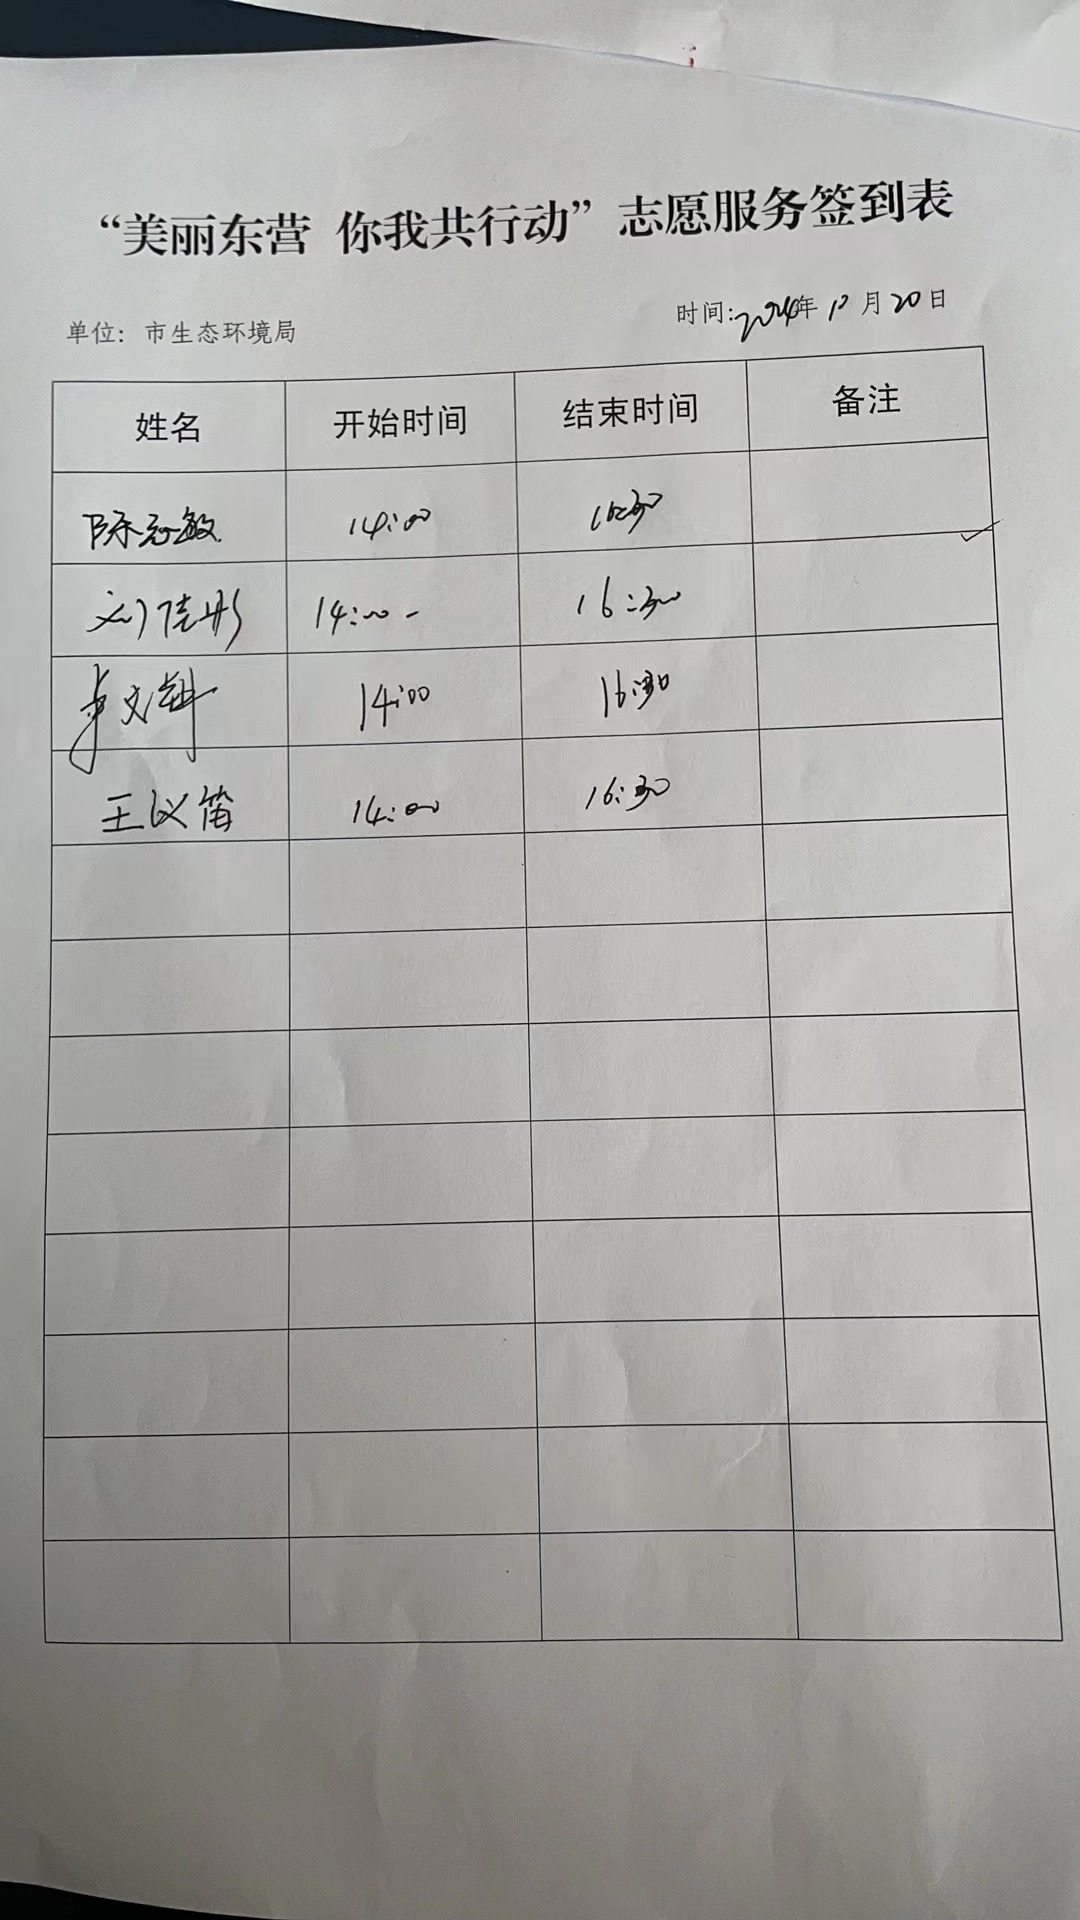 “美丽东营 你我共行动”志愿服务签到表
单位：市生态环境局 时间：2024年12月20日
姓名 开始时间 结束时间 备注
陈志敏 14:00 16:30
刘佳彤 14:00 - 16:30
文 14:00 16:30
王议笛 14:00 16:30